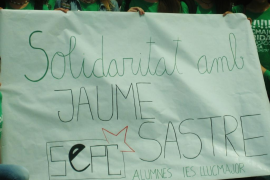 Solidaritat amb
JAUME
SASTRE
SEPC
ALUMNES IES LLUCMAJOR